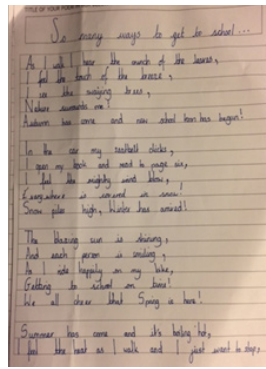 TITLE OF YOUR POEM
So many ways to get to school...
As I walk I hear the crunch of the leaves,
I feel the touch of the breeze,
I see the swaying trees,
Nature surrounds me!
Autumn has come and new school term has begun!
In the car my seatbelt clicks,
I open my book and read to page six,
I feel the mighty wind blow,
Everywhere is covered in snow!
Snow piles high, Winter has arrived!
The blazing sun is shining,
And each person is smiling,
As I ride happily on my bike,
Getting to school on time!
We all cheer that Spring is here!
Summer has come and it's boiling hot,
I feel the heat as I walk and I just want to stop,